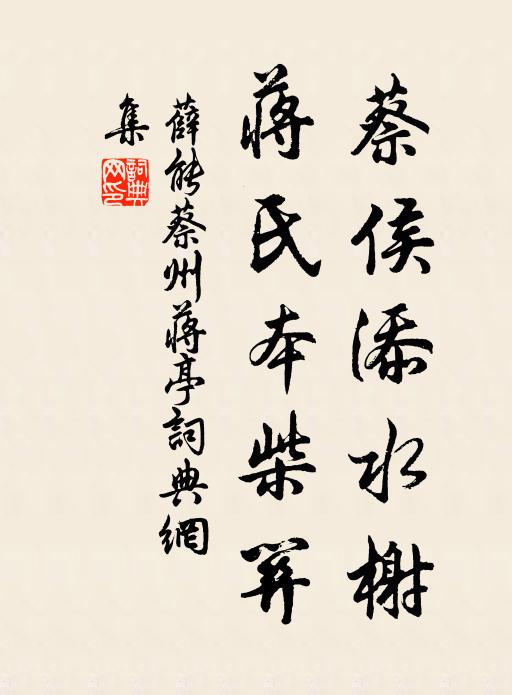 蔡侯添水榭
蔣氏本柴關
薛能蔡州蔣亭詞典網
集
詞典網印